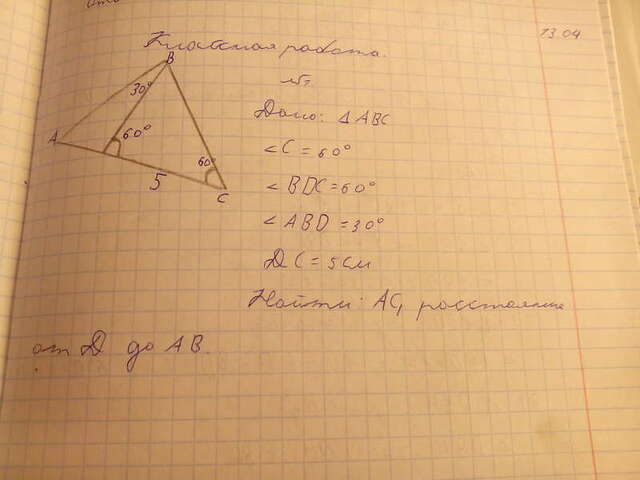 Классная работа.
13.04
№7.
B
30°
A
60°
60°
5
C
Дано: △ABC
∠C = 60°
∠BDC = 60°
∠ABD = 30°
DC = 5 см
Найти: AC, расстояние
от D до AB.